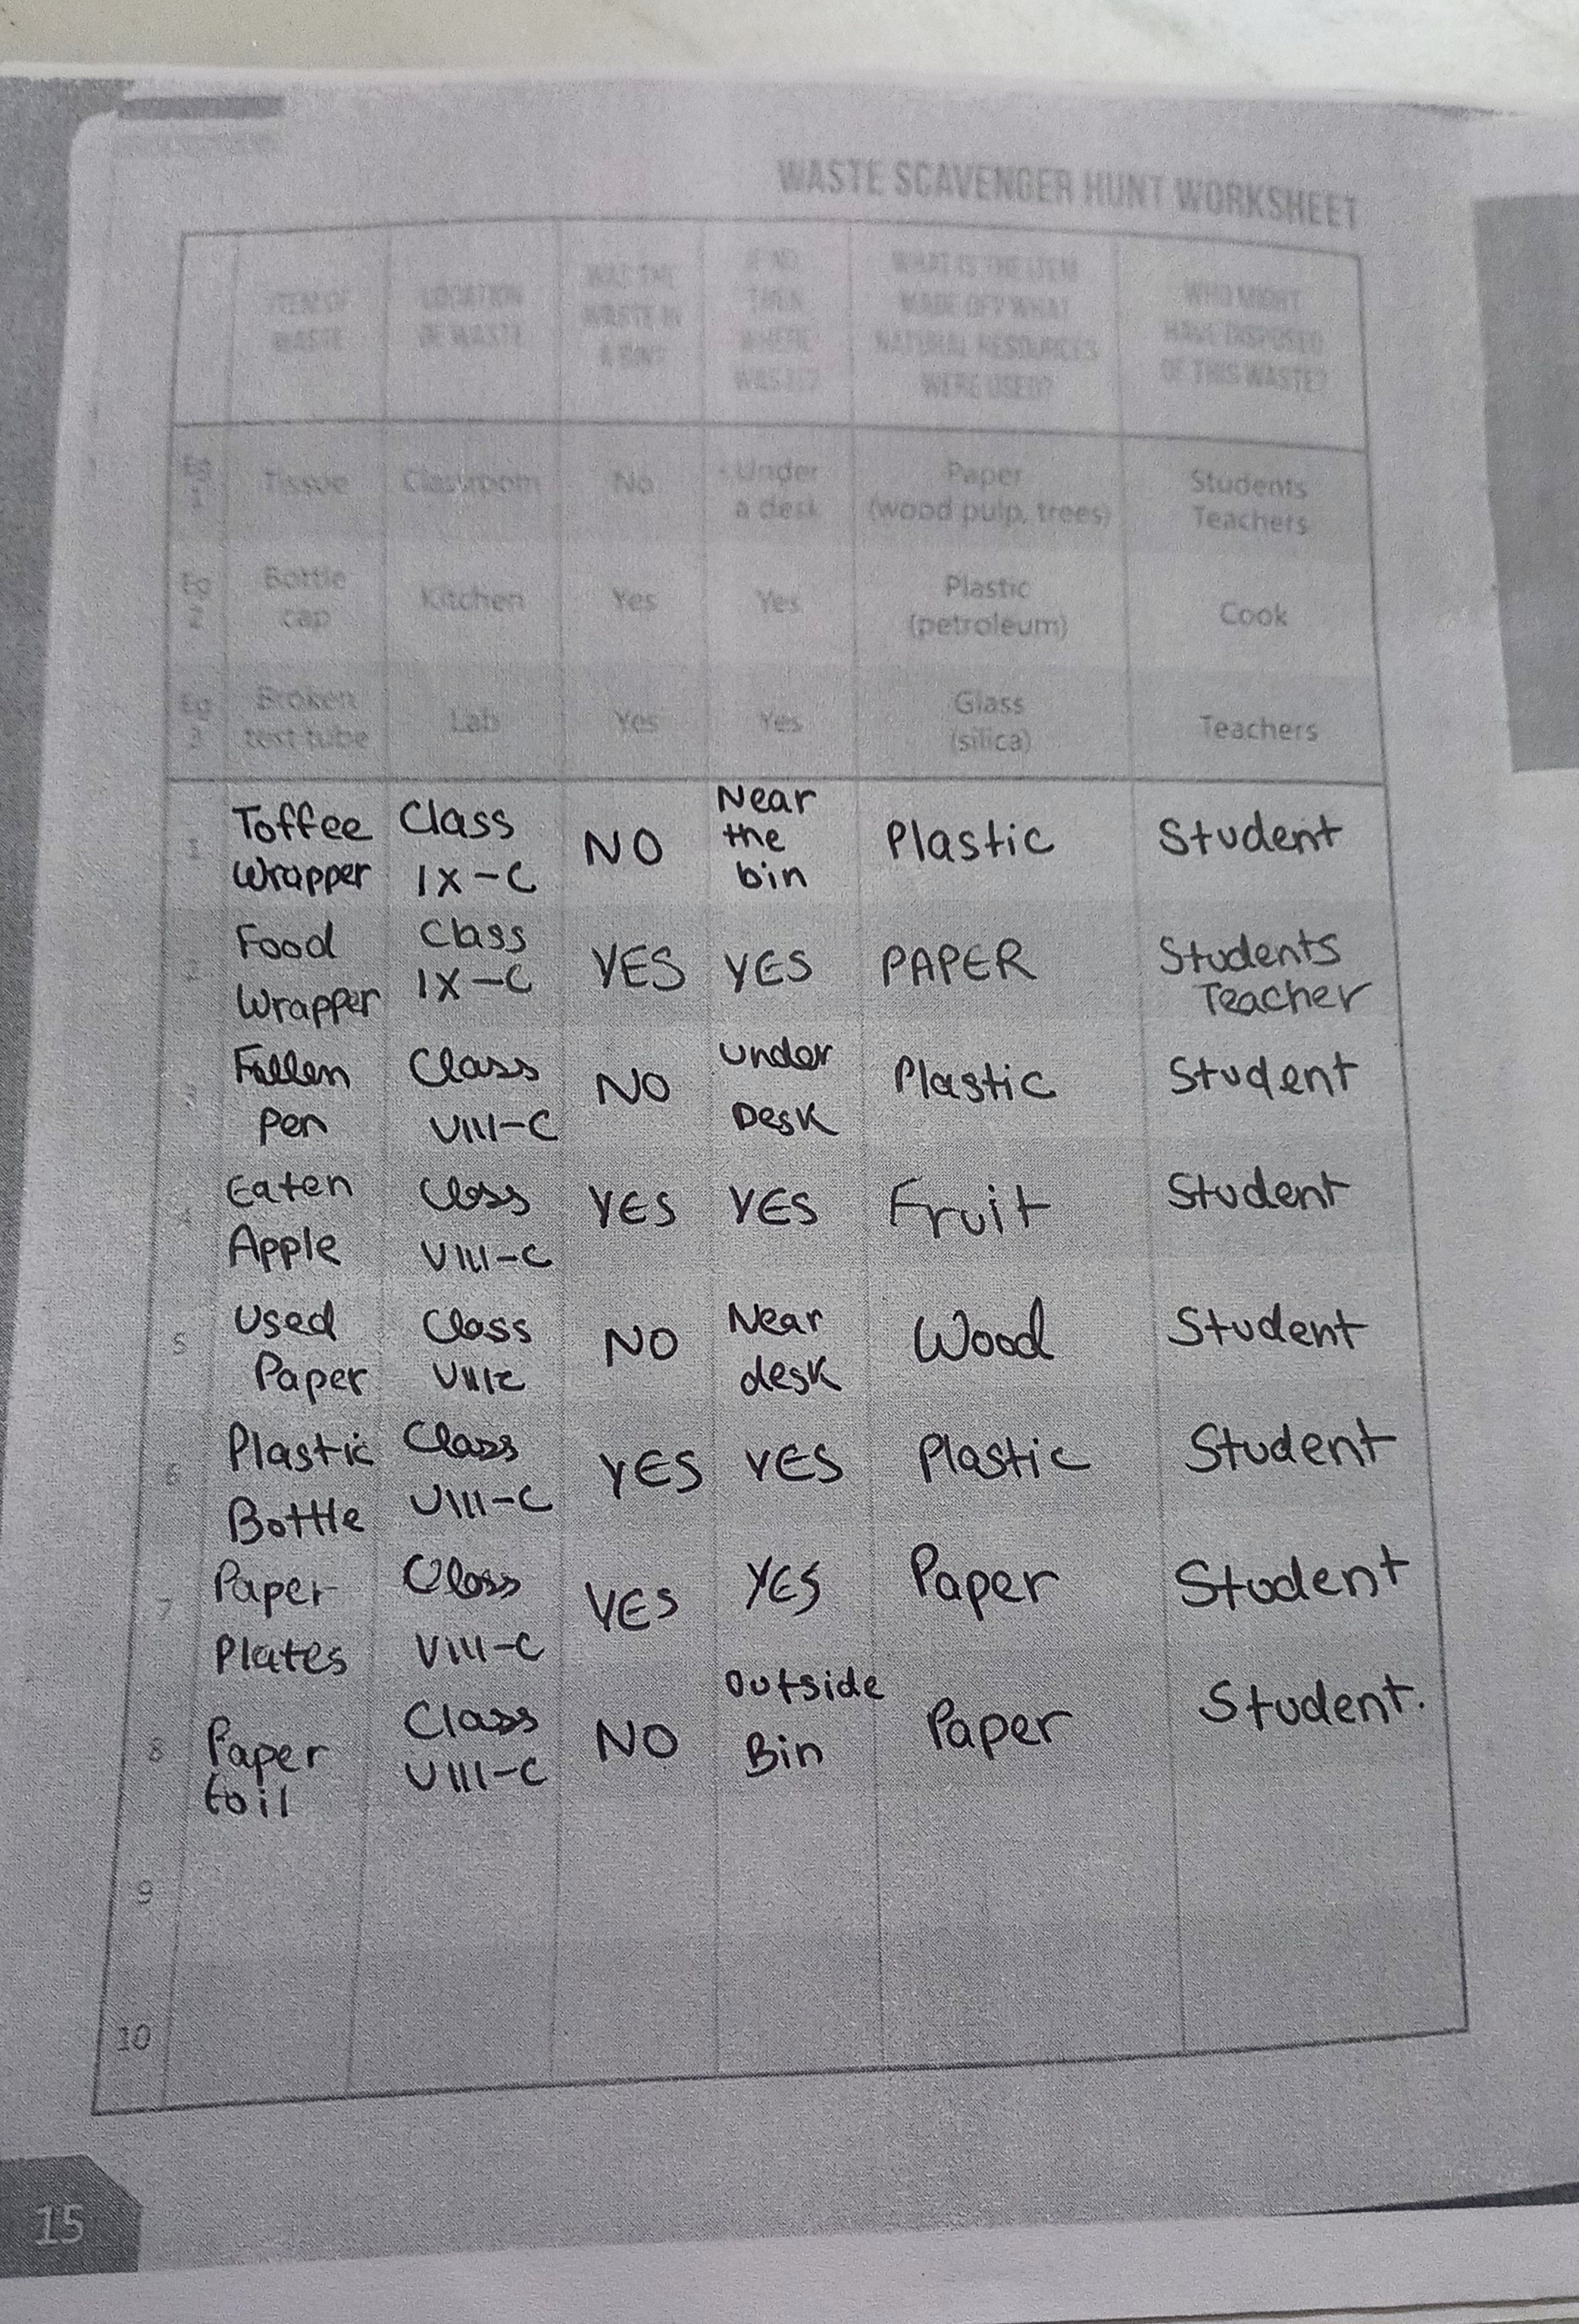 WASTE SCAVENGER HUNT WORKSHEET
ITEM OF WASTE
LOCATION OF WASTE
WAS THE WASTE IN A BIN?
IF NO, THEN WHERE WAS IT?
WHAT IS THE ITEM MADE OF? WHAT NATURAL RESOURCES WERE USED?
WHO MIGHT HAVE DISPOSED OF THIS WASTE?
Eg 1 Tissue Classroom No Under a desk Paper (wood pulp, trees) Students Teachers
Eg 2 Bottle cap Kitchen Yes Yes Plastic (petroleum) Cook
Eg 3 Broken test tube Lab Yes Yes Glass (silica) Teachers
1 Toffee Wrapper Class IX-C NO Near the bin Plastic Student
2 Food Wrapper Class IX-C YES YES PAPER Students Teacher
3 Fallen Pen Class VIII-C NO under Desk Plastic Student
4 Eaten Apple Class VIII-C YES YES Fruit Student
5 Used Paper Class NO Near desk Wood Student
6 Plastic Bottle Class VIII-C YES YES Plastic Student
7 Paper Plates Class VIII-C YES YES Paper Student
8 Paper foil Class VIII-C NO Outside Bin Paper Student.
9
10
15